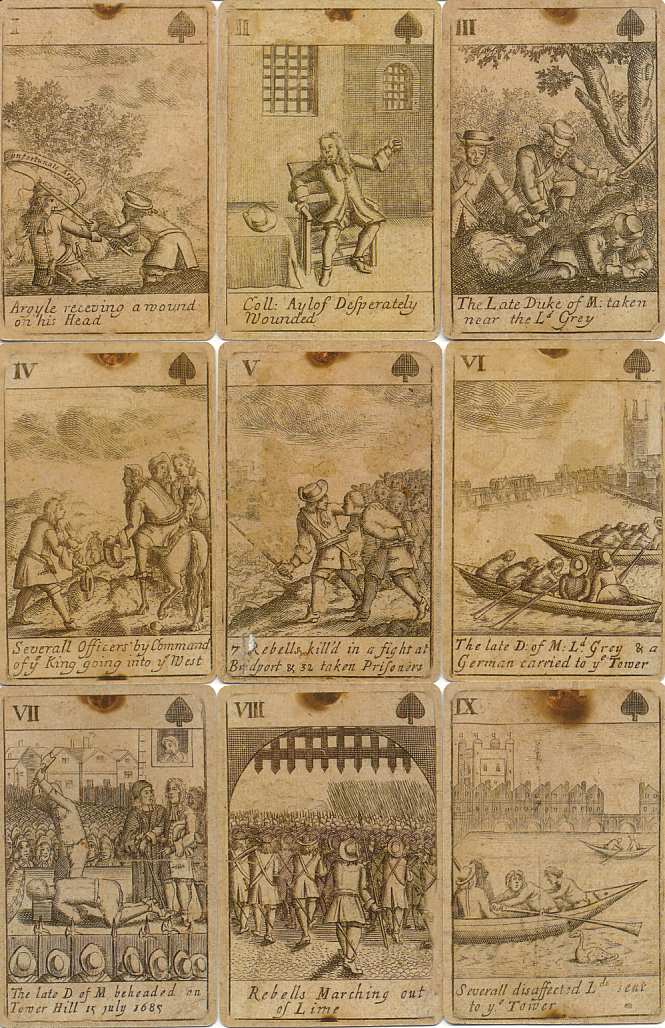 I
unfortunate Scot
Argyle receving a wound
on his Head
II
Coll: Aylof Desperately
Wounded
III
The Late Duke of M: taken
near the Ld Grey
IV
Severall Officers by Command
of ye King going into ye West
V
7 Rebells kill'd in a fight at
Bridport & 32 taken Prisoners
VI
The late D: of M: Ld Grey & a
German carried to ye Tower
VII
The late D of M beheaded on
Tower Hill 15 july 1685
VIII
Rebells Marching out
of Lime
IX
Severall disaffected Lds sent
to ye Tower